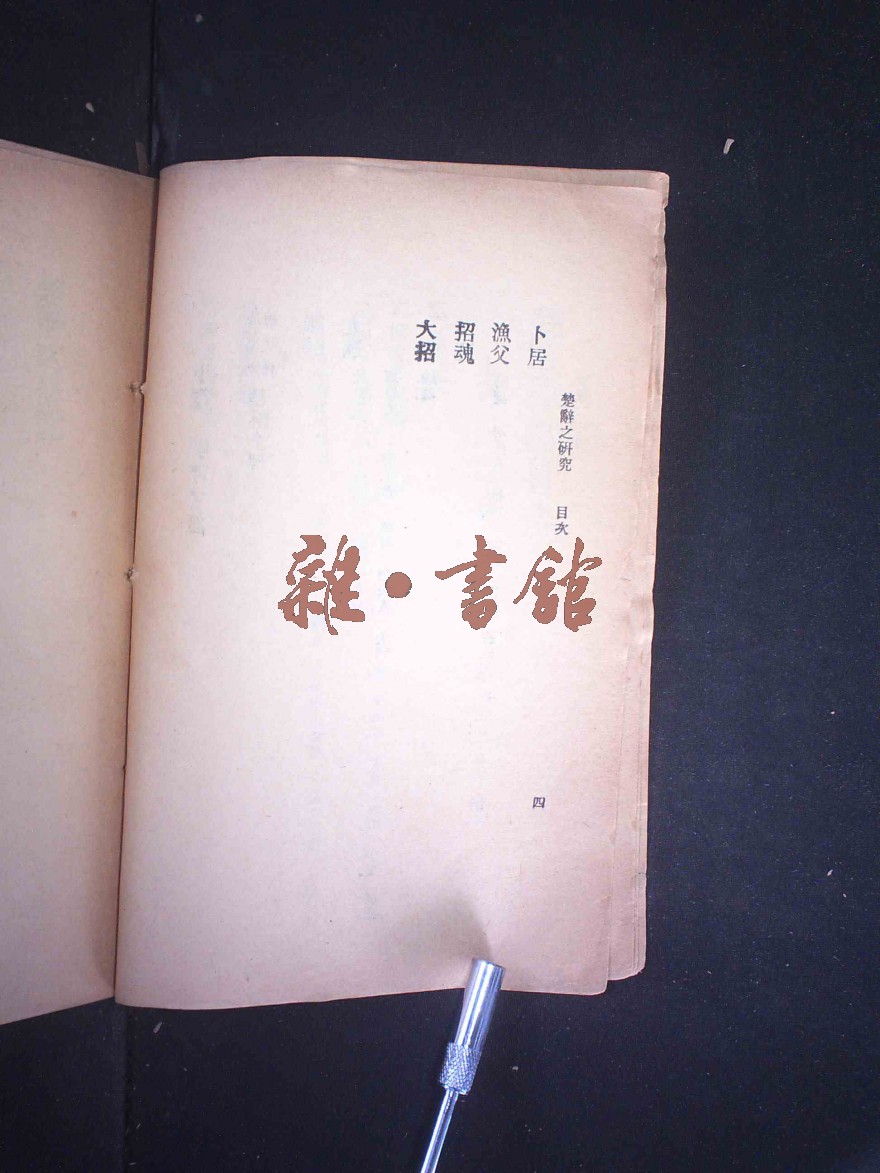 楚辭之硏究　目次
四
卜居
漁父
招魂
大招
雜•書館